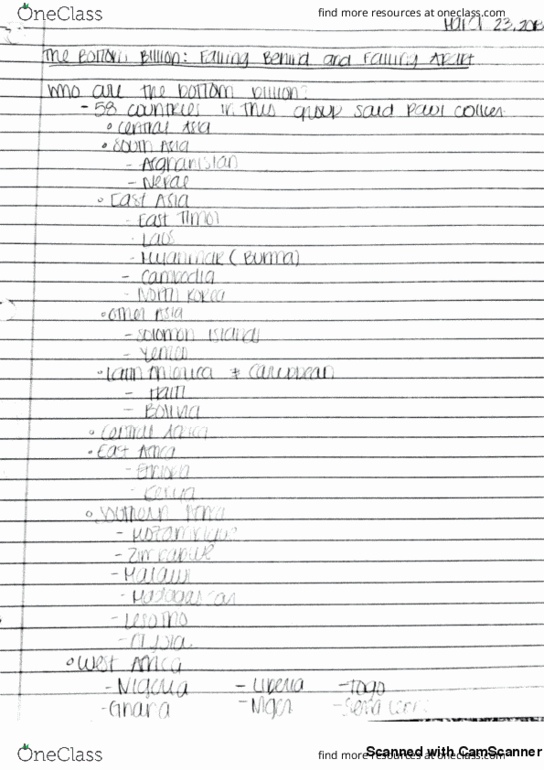 OneClass
find more resources at oneclass.com
23, 20
The Bottom Billion: Falling Behind and Falling Apart
Who are the bottom billion:
- 58 countries in this group said Paul Collier
◦ Central Asia
• South Asia
- Afghanistan
- Nepal
◦ East Asia
- East Timor
- Laos
- Myanmar (Burma)
- Cambodia
- North Korea
◦ other Asia
- Solomon Islands
- Yemen
◦ Latin America + Caribbean
- Haiti
- Bolivia
◦ Central Africa
◦ East Africa
- Kenya
◦ Southern Africa
- Mozambique
- Zimbabwe
- Malawi
- Madagascar
- Lesotho
◦ West Africa
- Nigeria - Liberia - Togo
- Ghana - Niger - Sierra
Scanned with CamScanner
OneClass
find more resources at oneclass.com